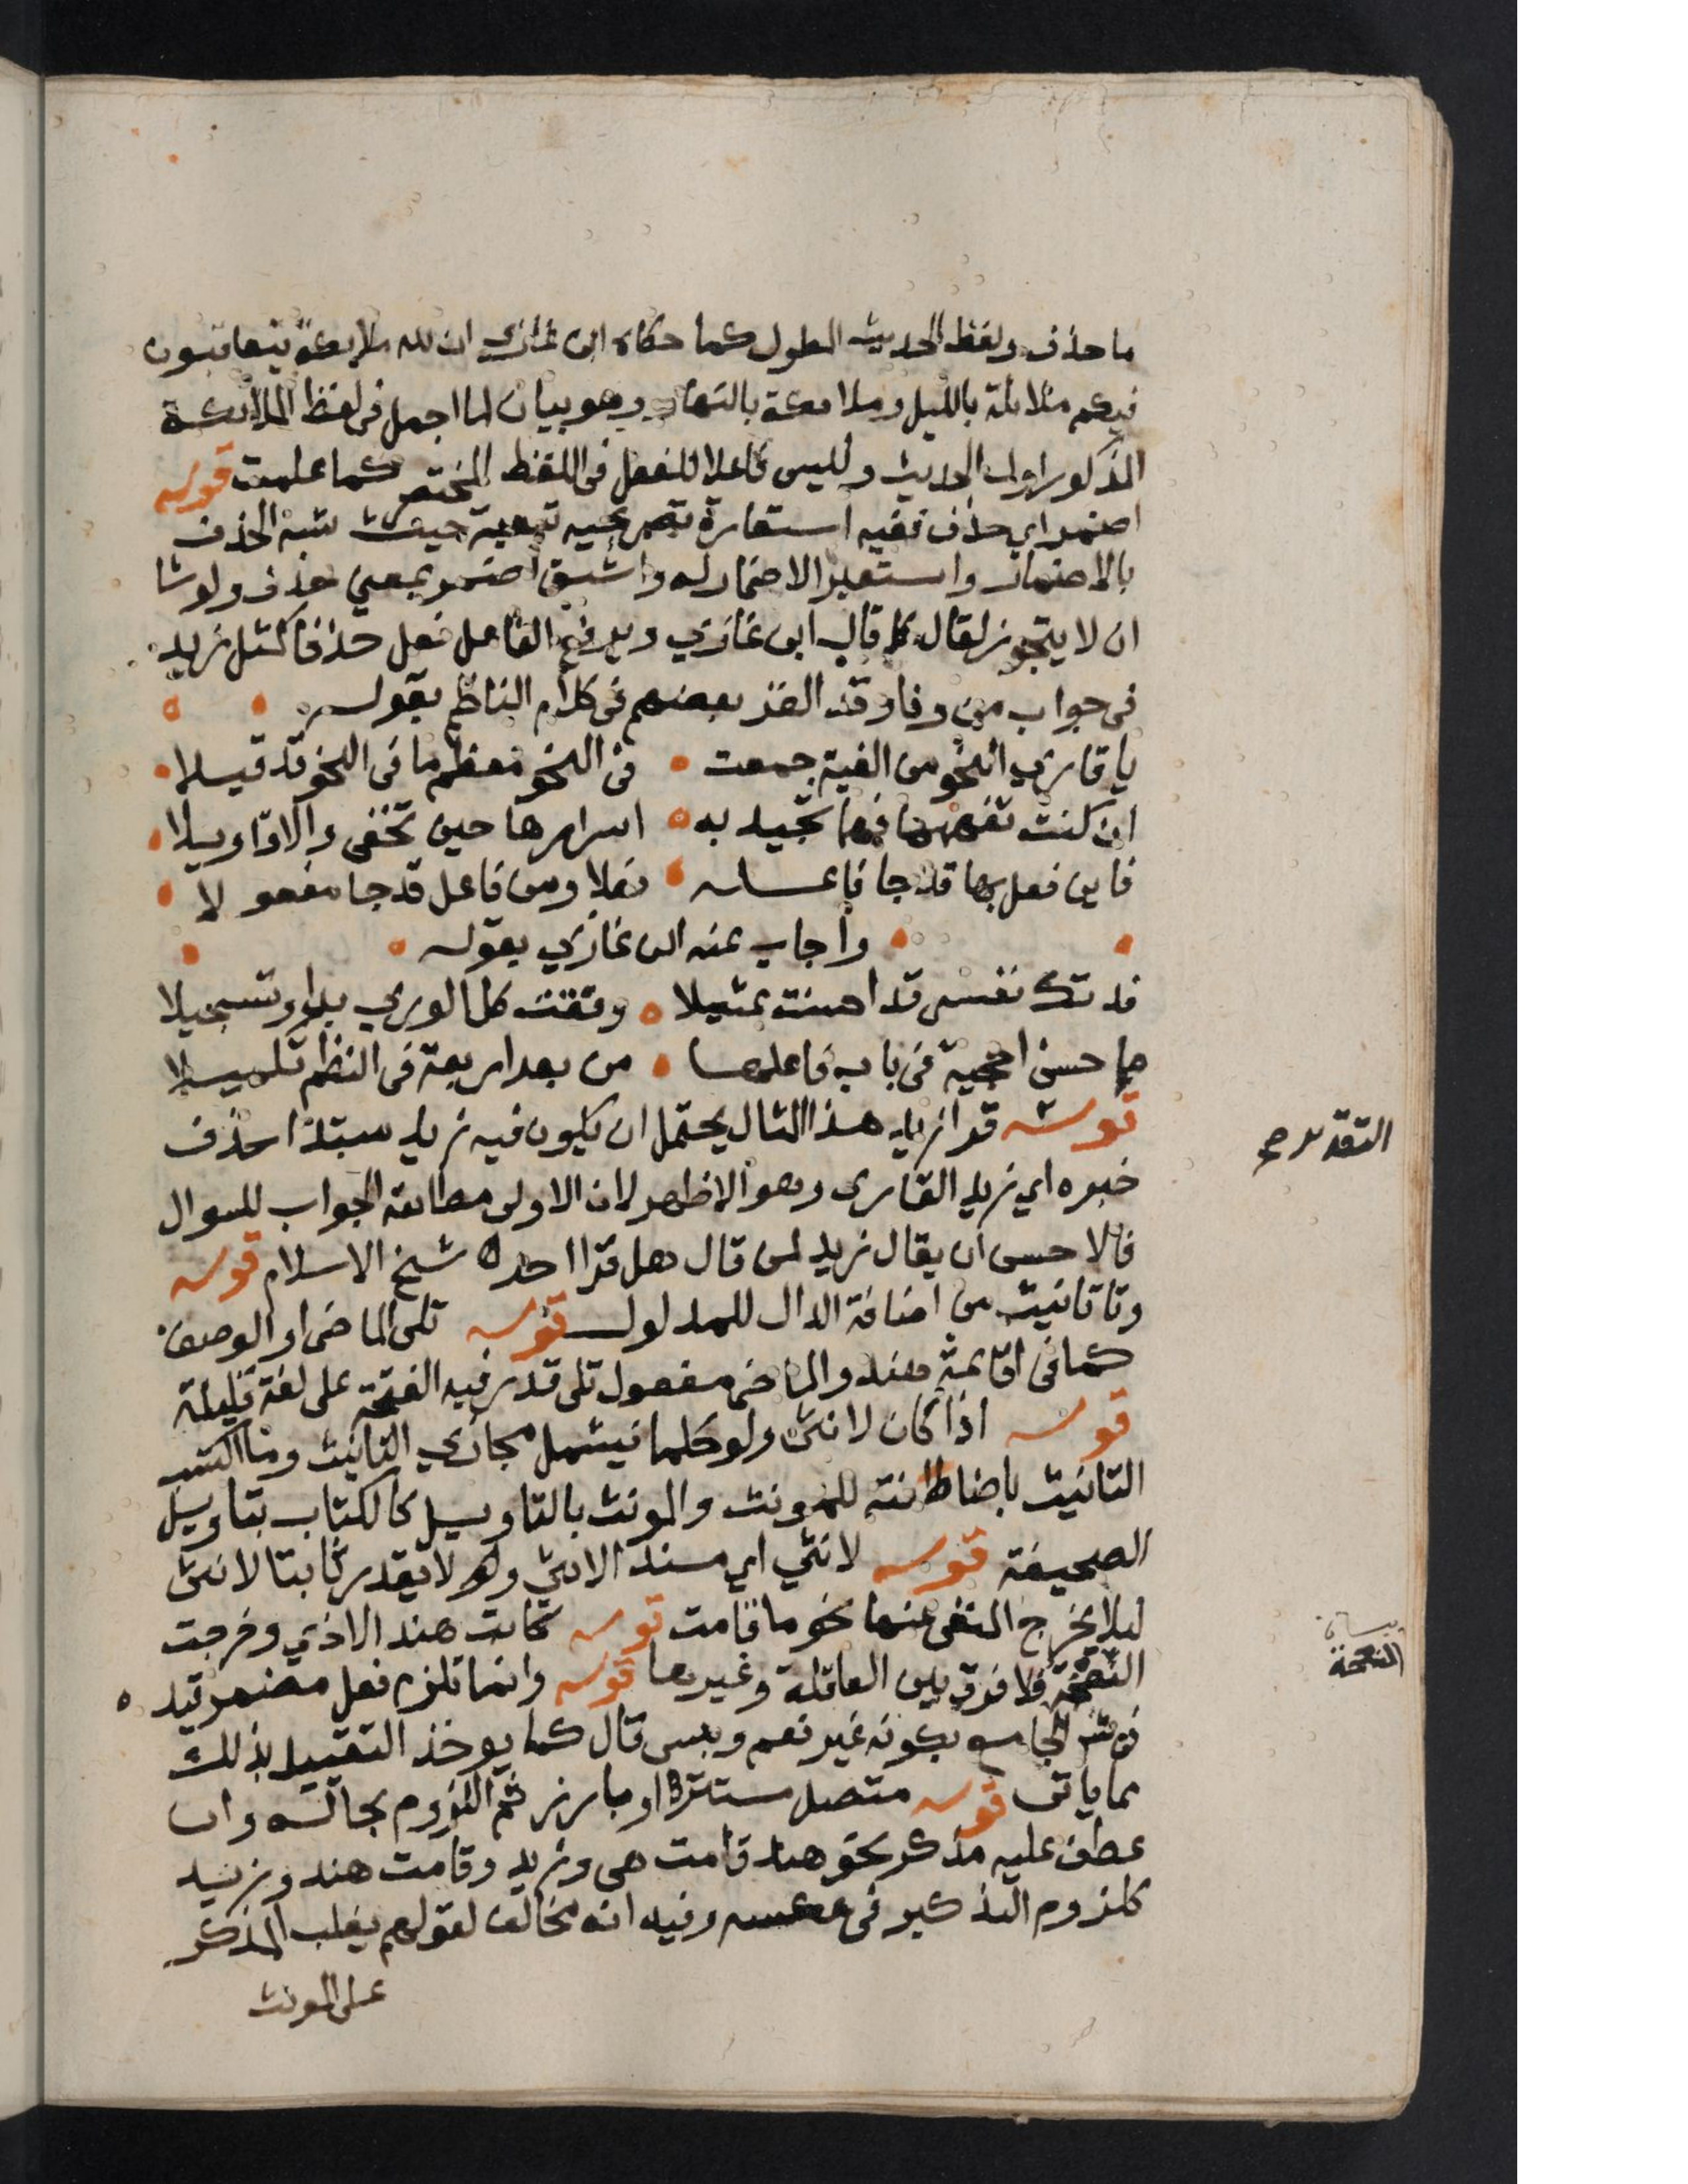 ما حذف ولفظ الحديث المطول كما حكاه ابن غازي ان لله ملايكة يتعاقبون
فيكم ملائكة بالليل وملايكة بالنهار وهو بيان لما اجمل في لفظ الملائكة
المذكور اول الحديث وليس فاعلا للفعل في اللفظ المختصر كما علمت قوله
اضمر اي حذف ففيه استعارة تصريحيه تبعية حيث شبه الحذف
بالاضمار واستعير الاضمار له واشتق اضمر بمعني حذف ولو شا
ان لا يتجوز لقال كما قال ابن غازي ويرفع الفاعل فعل حذفا كمثل زيد
في جواب من وفا وقد الغز بعضهم في كلام الناظم بقوله
يا قاري النحو من الفية جمعت في النحو معظم ما في النحو قد قيلا
ان كنت تفهمها فهما تجيد به اسرارها حين تخفى والاقاويلا
فاين فعل بها قد جا فاعله فعلا ومن فاعل قد جا مفعولا
واجاب عنه ابن غازي بقوله
فدتك نفسي قد احسنت تمثيلا وفقت كل الوري بدا وتسجيلا
ها حسن احجية في باب فاعلها من بعد اربعة في النظم تكميلا
قوله قرا زيد هذا المثال يحتمل ان يكون فيه زيد مبتدا حذف
خبره اي زيد القاري وهو الاظهر لان الاولى مطابقة الجواب للسوال
فالاحسن ان يقال زيد لمن قال هل قرا احد اه شيخ الاسلام قوله
وتا تانيث من اضافة الدال للمدلول قوله تلى الماضى او الوصف
كما في اقائمة هند والماضي مفعول تلى قدر فيه الفتحة على لغة قليلة
قوله اذا كان لانثى ولو حكما فيشمل مجازي التانيث وما اكتسب
التانيث باضافته للمونث والمونث بالتاويل كالكتاب بتاويل
الصحيفة قوله لانثي اي مسند الانثي ولم لا يقدر ثابتا لانثى
ليلا يخرج المنفى عنها نحو ما قامت قوله كابت هند الاذي وخرجت
النعجة فلا فرق بين العاقلة وغيرها قوله وانما تلزم فعل مضمر قيد
في شرح الجامع بكونه غير نعم وبيس قال كما يوخذ التقييد بذلك
مما ياتى قوله متصل مستترا او بارز ثم اللزوم بحاله وان
عطف عليه مذكر نحو هند قامت هي وزيد وقامت هند وزيد
كلزوم التذكير في عكسه وفيه انه مخالف لقولهم يغلب المذكر
على المونث
التقدير
بيان
النعجة